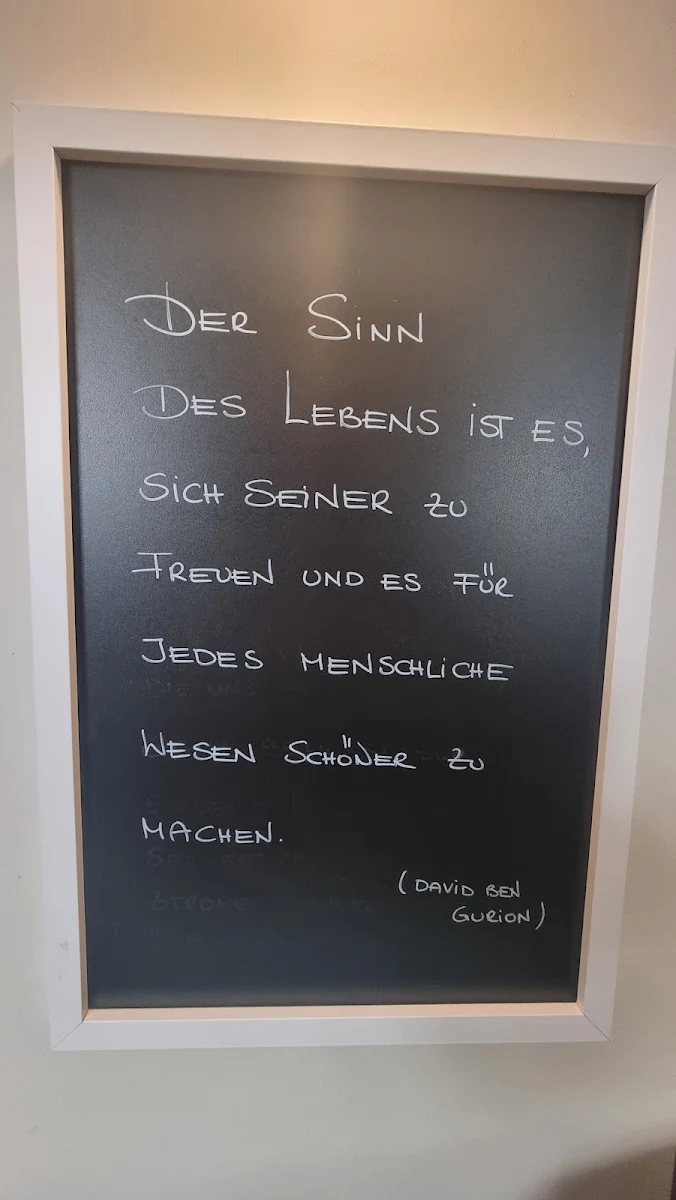 DER SINN
DES LEBENS IST ES,
SICH SEINER ZU
FREUEN UND ES FÜR
JEDES MENSCHLICHE
WESEN SCHÖNER ZU
MACHEN.
(DAVID BEN
GURION)